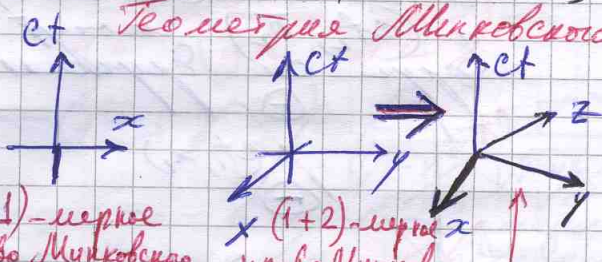 Геометрия Минковского
ct
x
ct
y
x
ct
z
y
x
1)-мерное
(1+2)-мерное
Минковского